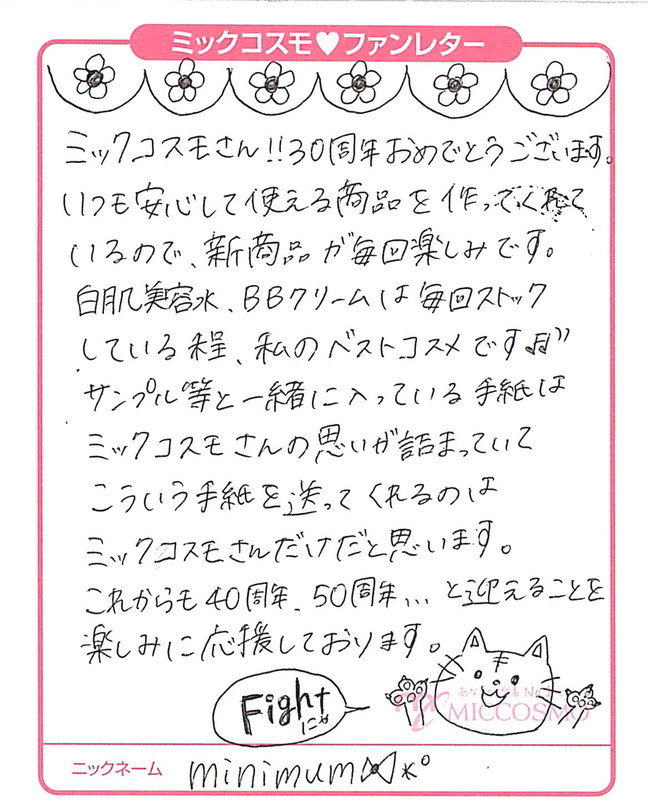 ミックコスモ♥ファンレター
ミックコスモさん!!30周年おめでとうございます。
いつも安心して使える商品を作ってくれて
いるので、新商品が毎回楽しみです。
白肌美容水、BBクリームは毎回ストック
している程、私のベストコスメです♬"
サンプル等と一緒に入っている手紙は
ミックコスモさんの思いが詰まっていて
こういう手紙を送ってくれるのは
ミックコスモさんだけだと思います。
これからも40周年、50周年...と迎えることを
楽しみに応援しております。
Fight
に。
MICCOSMO
ニックネーム minimum⋈*°